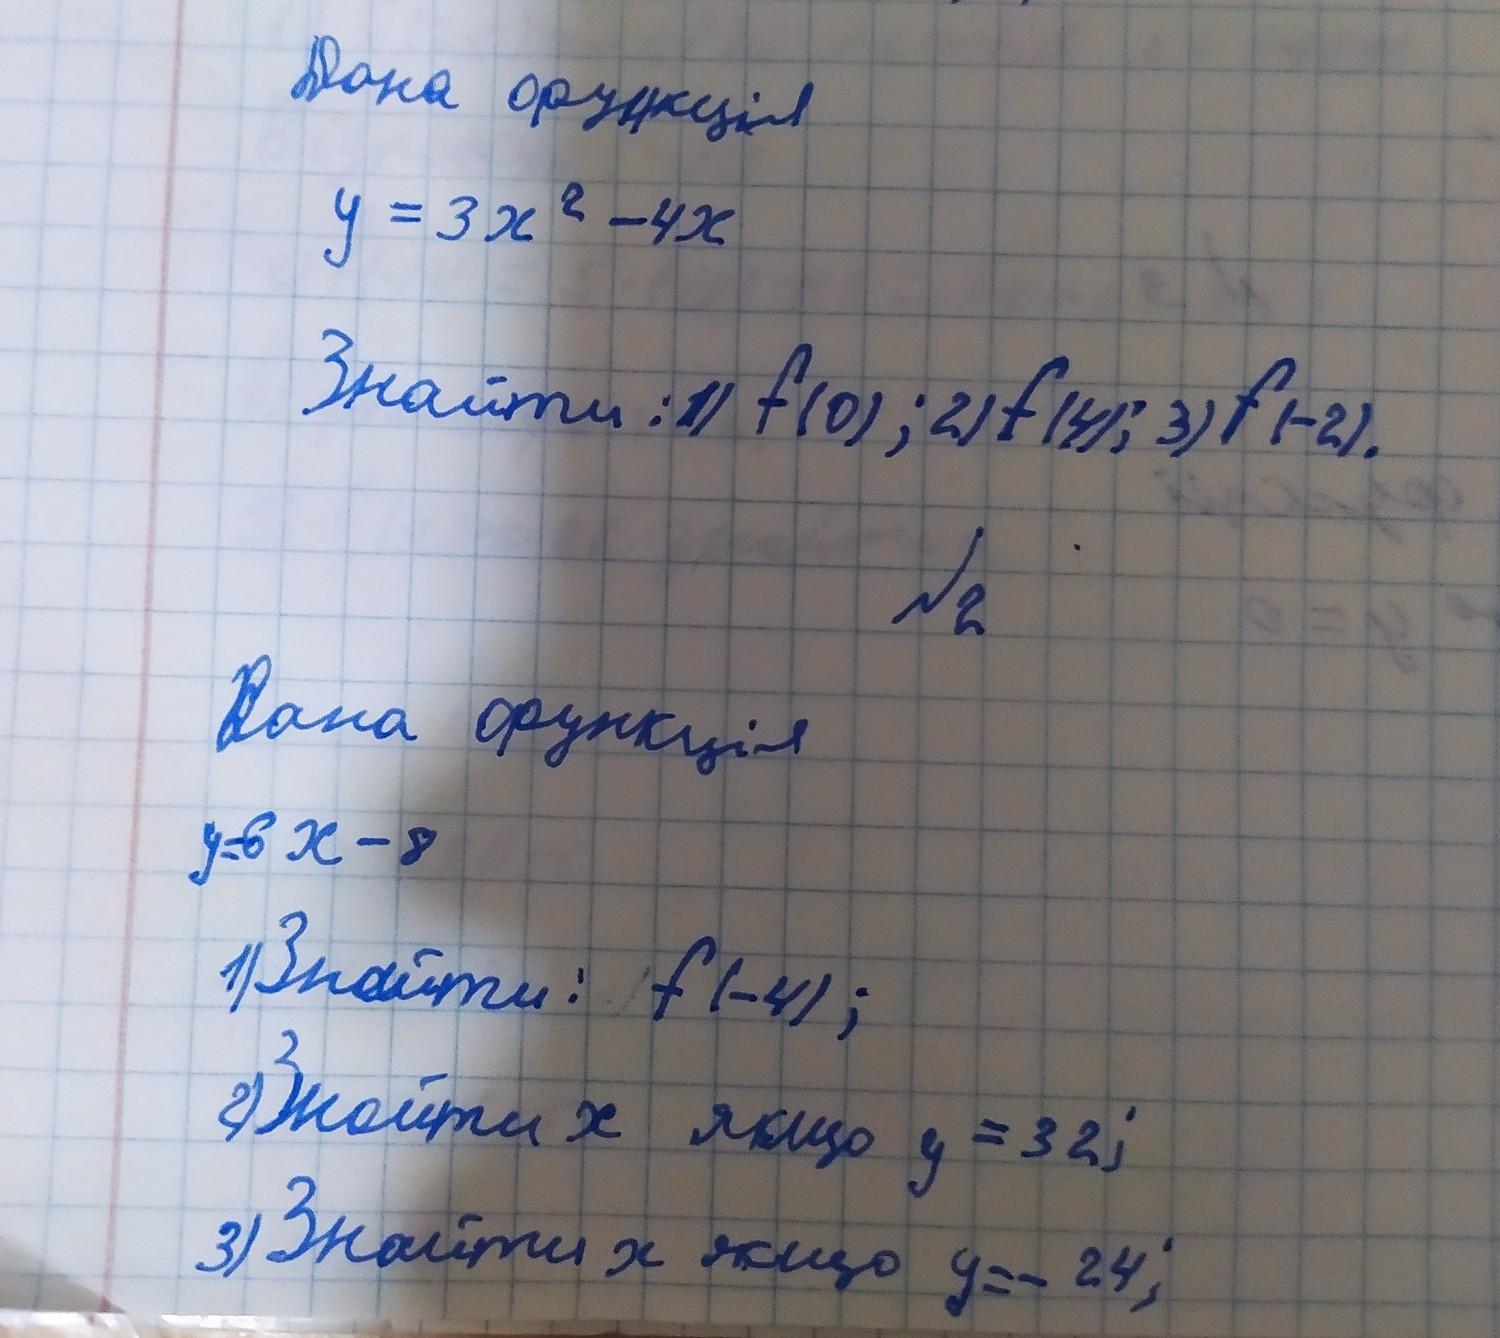 Дана функція
y = 3x² - 4x
Знайти: 1) f(0); 2) f(4); 3) f(-2).
№2
Дана функція
y=6x - 8
1) Знайти: f(-4);
2) Знайти x якщо y = 32;
3) Знайти x якщо y = - 24;